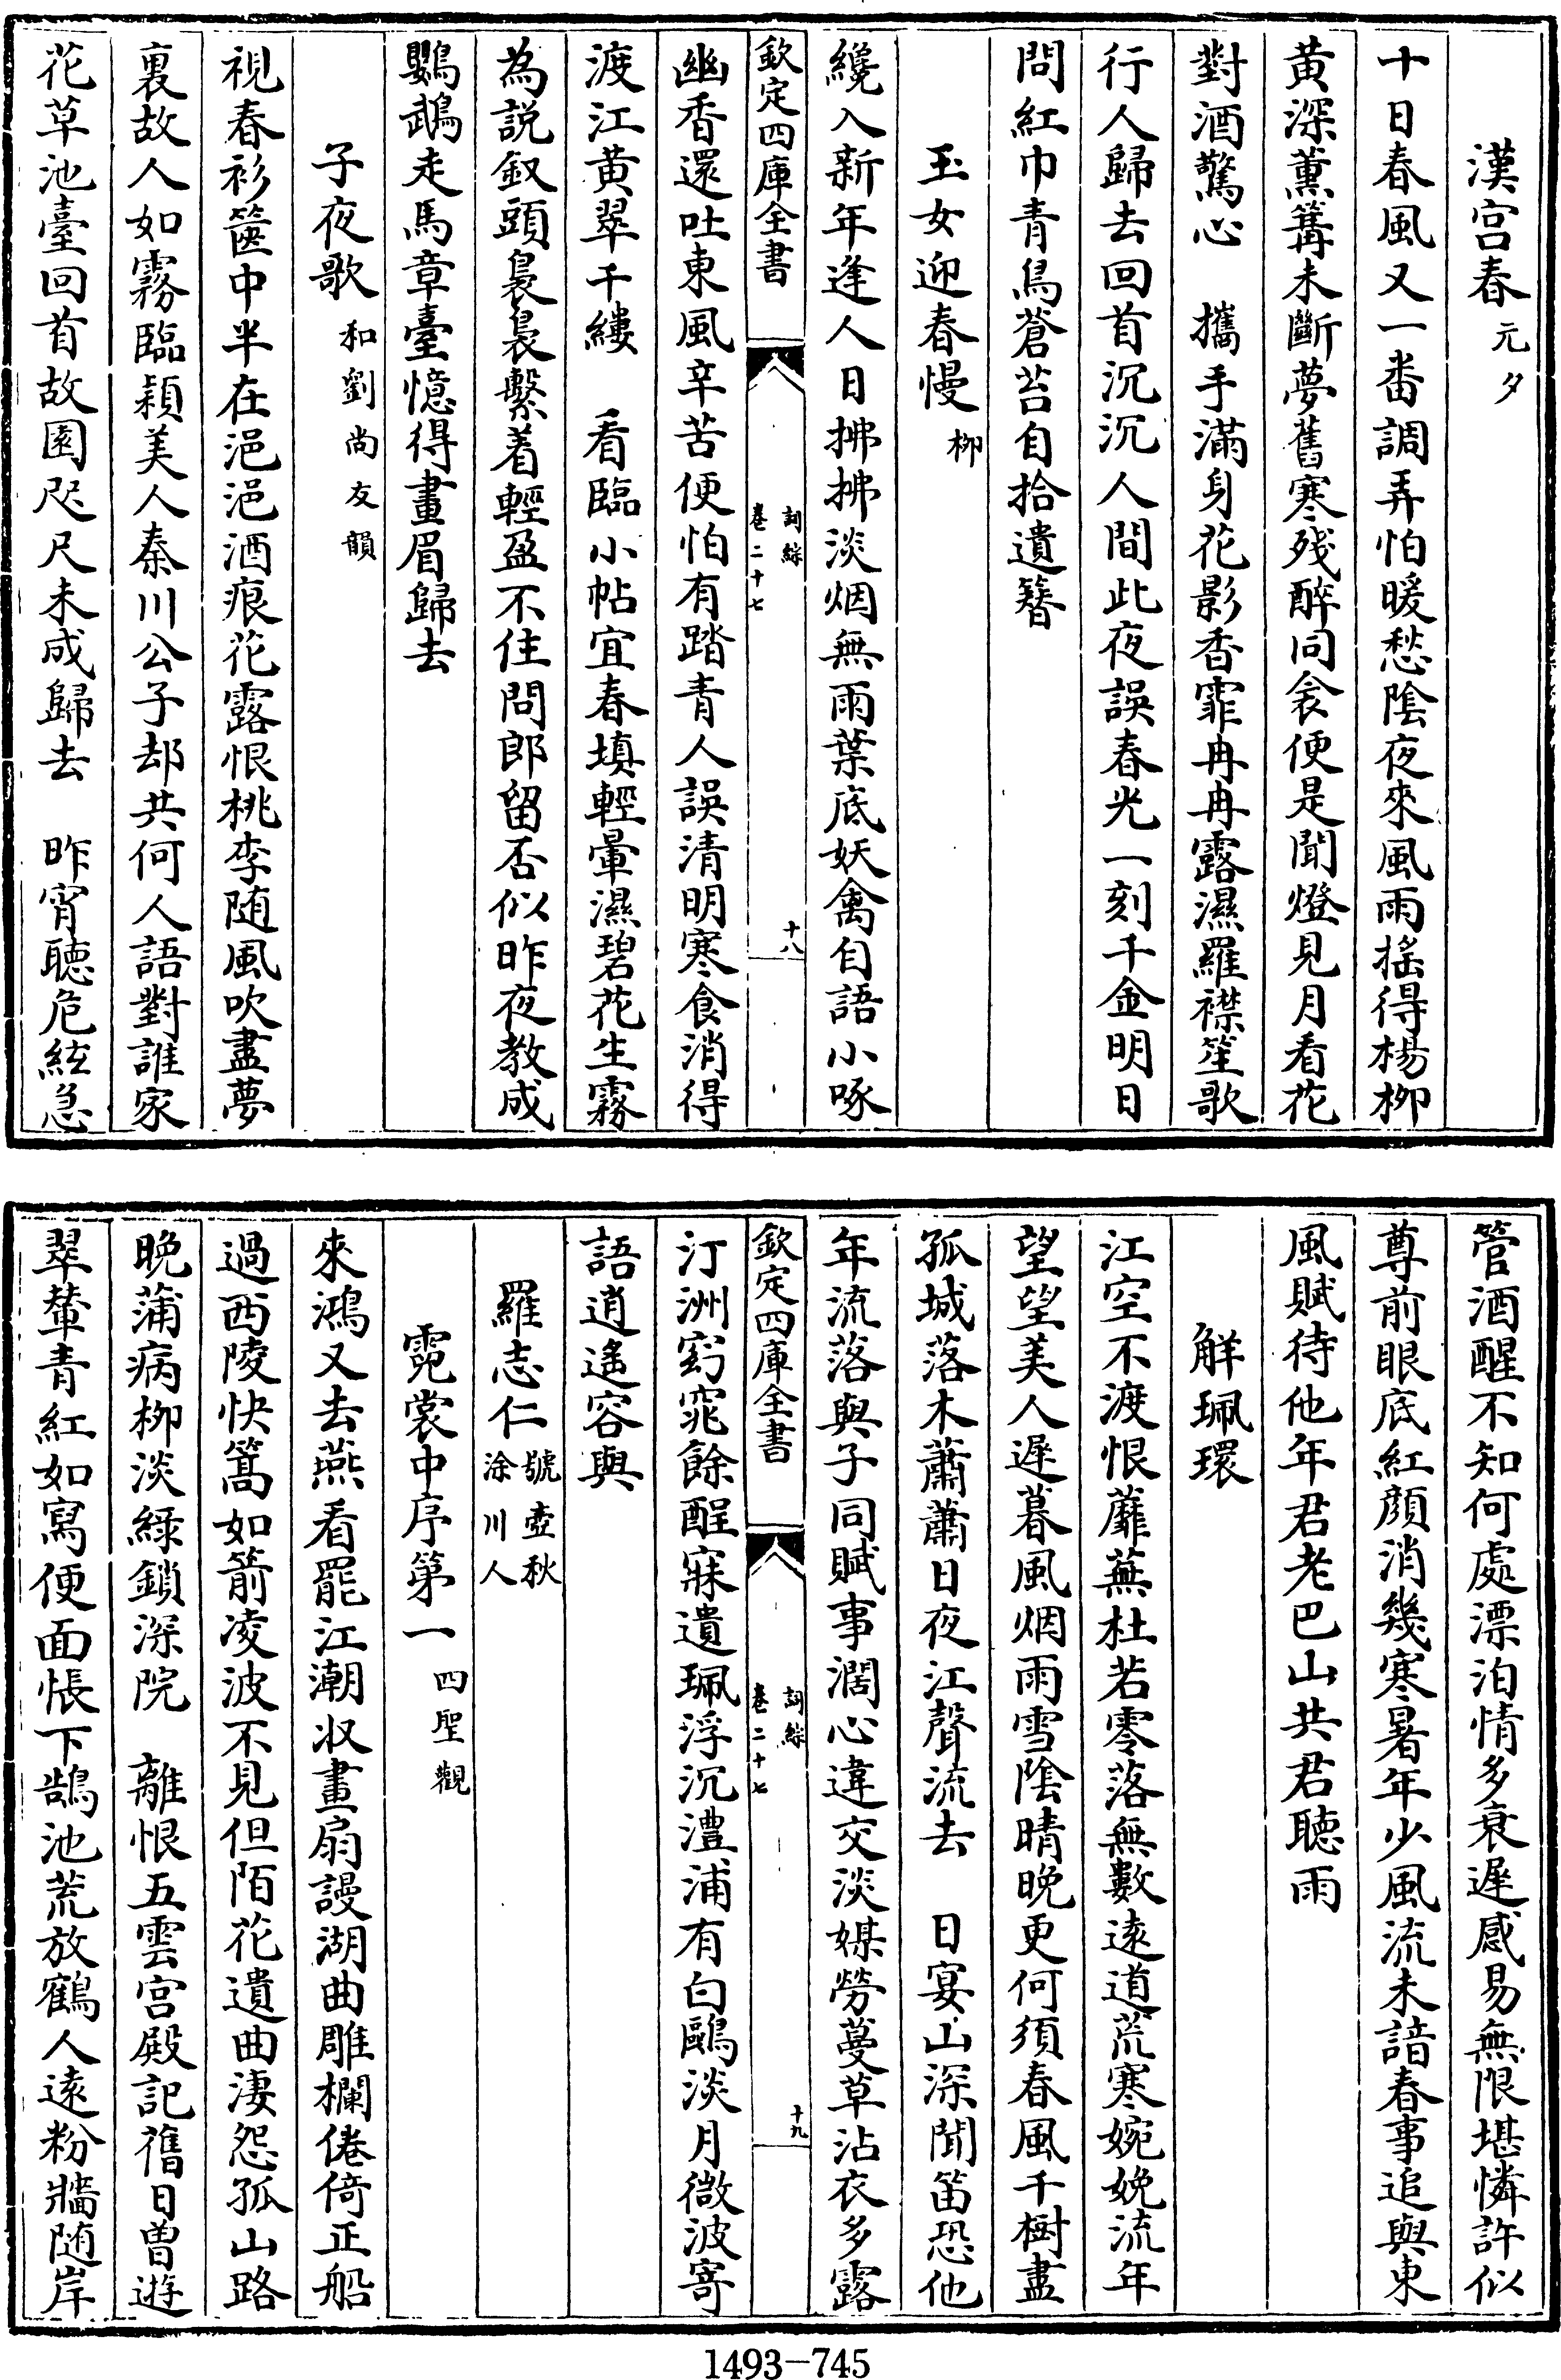 漢宫春元夕
十日春風又一番調弄怕暖愁陰夜來風雨揺得楊柳
黄深薰篝未斷夢舊寒殘醉同衾便是聞燈見月看花
對酒驚心　攜手滿身花影香霏冉冉露濕羅襟笙歌
行人歸去回首沉沉人間此夜誤春光一刻千金明日
問紅巾青鳥蒼苔自拾遺簪
玉女迎春慢柳
纔入新年逢人日拂拂淡烟無雨葉底妖禽自語小啄
欽定四庫全書
詞綜
卷二十七
十八
幽香還吐東風辛苦便怕有踏青人誤清明寒食消得
渡江黄翠千縷　看臨小帖宜春填輕暈濕碧花生霧
為説釵頭裊裊繫着輕盈不住問郎留否似昨夜教成
鸚鵡走馬章臺憶得畫眉歸去
子夜歌和劉尚友韻
視春衫篋中半在浥浥酒痕花露恨桃李随風吹盡夢
裏故人如霧臨潁美人秦川公子却共何人語對誰家
花草池臺回首故園咫尺未成歸去　昨宵聽危絃急
管酒醒不知何處漂泊情多衰遲感易無限堪憐許似
尊前眼底紅顔消幾寒暑年少風流未諳春事追與東
風賦待他年君老巴山共君聽雨
解珮環
江空不渡恨蘼蕪杜若零落無數逺道荒寒婉娩流年
望望美人遲暮風烟雨雪陰晴晚更何須春風千樹盡
孤城落木蕭蕭日夜江聲流去　日宴山深聞笛恐他
年流落與子同賦事濶心違交淡媒勞蔓草沾衣多露
欽定四庫全書
詞綜
卷二十七
十九
汀洲窈窕餘酲寐遺珮浮沉澧浦有白鷗淡月微波寄
語逍遥容與
羅志仁號壺秋
涂川人
霓裳中序第一四聖觀
來鴻又去燕看罷江潮收畫扇謾湖曲雕欄倦倚正船
過西陵快篙如箭凌波不見但陌花遺曲淒怨孤山路
晩蒲病柳淡緑鎖深院　離恨五雲宫殿記舊日曽遊
翠輦青紅如寫便面悵下鵠池荒放鶴人逺粉牆随岸
1493—745